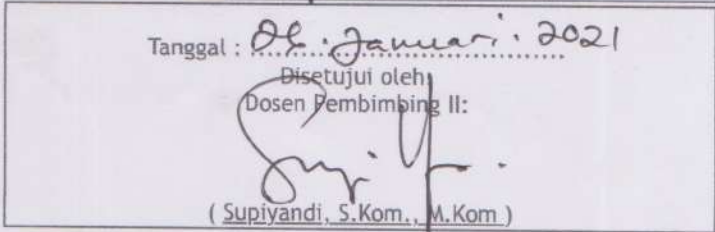 Tanggal : Januari. 2021
Disetujui oleh:
Dosen Pembimbing II:
( Supiyandi, S.Kom., M.Kom )